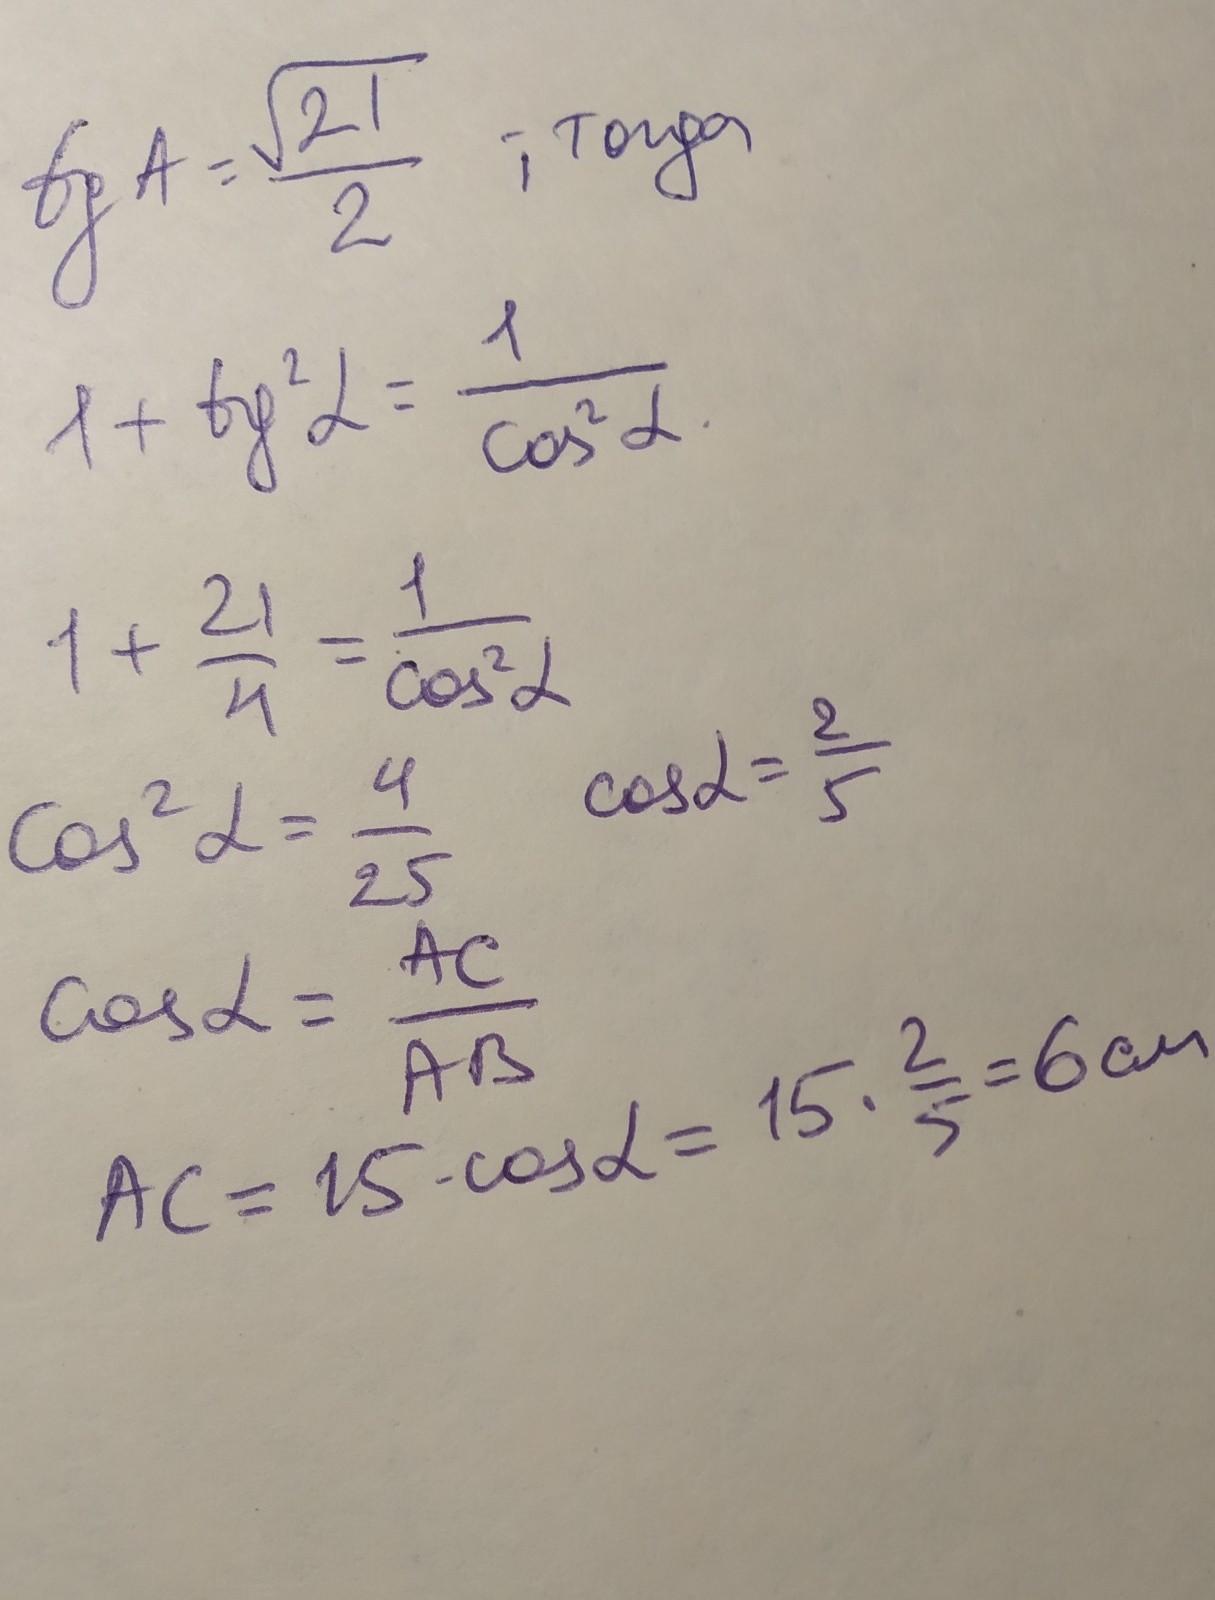 tg A = √21/2 ; тогда
1 + tg²α = 1/cos²α.
1 + 21/4 = 1/cos²α
cos²α = 4/25 cosα = 2/5
cosα = AC/AB
AC = 15·cosα = 15·2/5 = 6 см